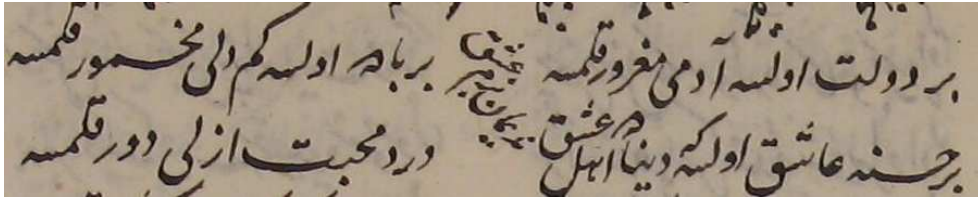 بر دولت اولسه آدمی مغرور قلمسه بر باده اولسه کم دلی مخمور قلمسه
بر حسنه عاشق اولسه دیناده اهل عشق درد محبت ازلی دور قلمسه